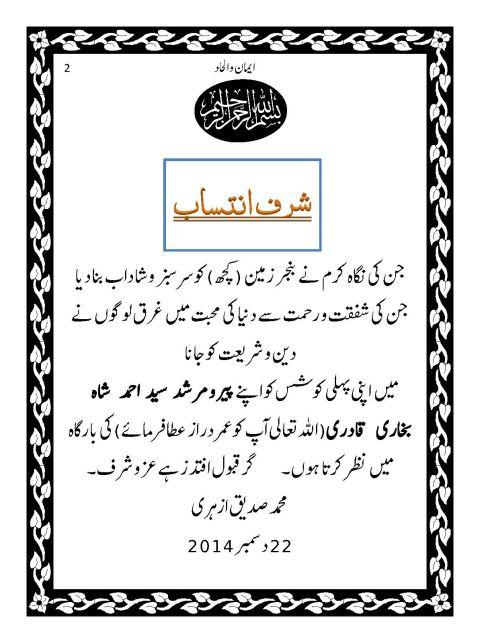 2
ایمان والحاد
بسم اللہ الرحمن الرحیم
شرف انتساب
جن کی نگاہ کرم نے بنجر زمین (کچھ) کو سرسبز و شاداب بنادیا
جن کی شفقت و رحمت سے دنیا کی محبت میں غرق لوگوں نے
دین و شریعت کو جانا
میں اپنی پہلی کوشس کو اپنے پیرو مرشد سید احمد شاہ
بخاری قادری (اللہ تعالی آپ کو عمر دراز عطا فرمائے) کی بارگاہ
میں نظر کرتا ہوں۔ گر قبول افتد زہے عز و شرف۔
محمد صدیق ازہری
22 دسمبر 2014